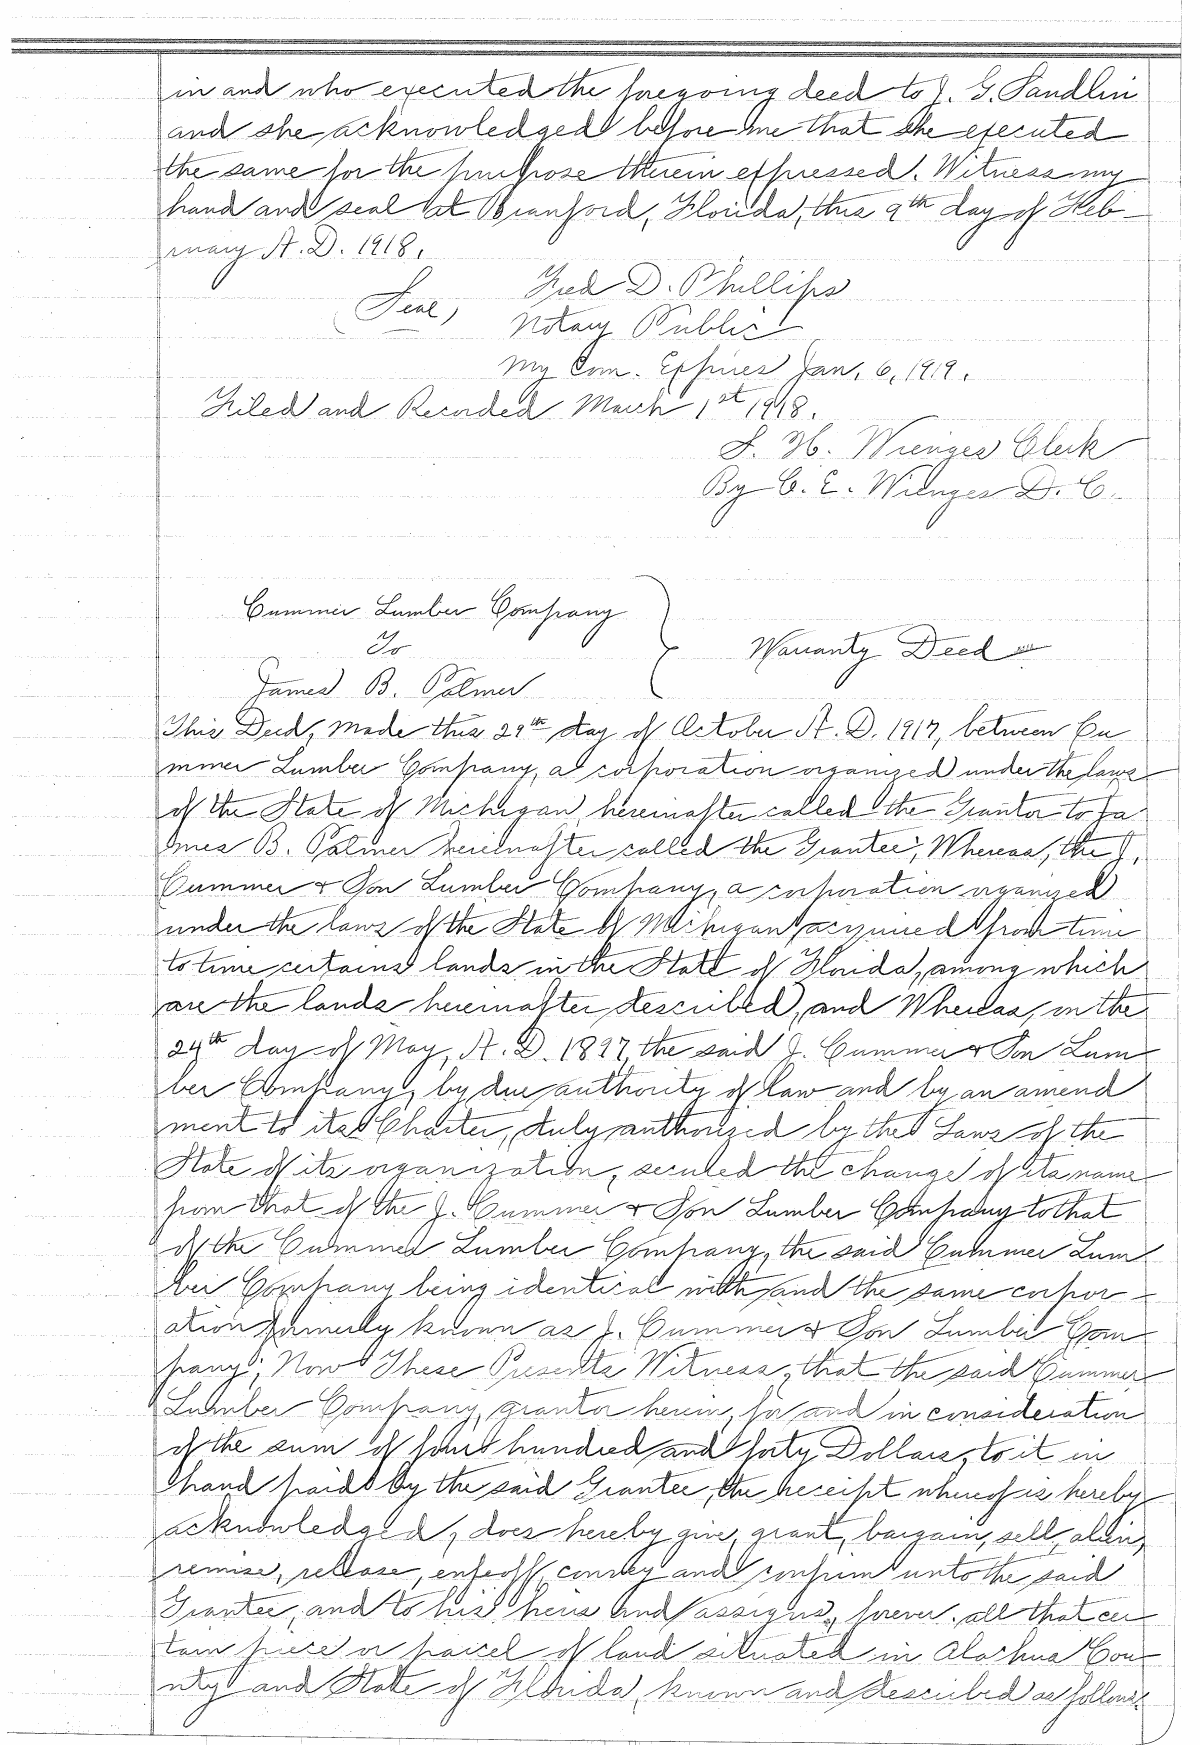 in and who executed the foregoing deed to J. G. Sandlin
and she acknowledged before me that she executed
the same for the purpose therein expressed. Witness my
hand and seal at Branford, Florida, this 9th day of Feb-
ruary A. D. 1918.
Fred D. Phillips
(Seal)
Notary Public
My Com. Expires Jan. 6, 1919.
Filed and Recorded March 1st 1918.
S. H. Wienges Clerk
By C. E. Wienges D. C.
Cummer Lumber Company
To
Warranty Deed
James B. Palmer
This Deed, Made this 29th day of October A. D. 1917, between Cu
mmer Lumber Company, a corporation organized under the laws
of the State of Michigan, hereinafter called the Grantor to Ja
mes B. Palmer hereinafter called the Grantee; Whereas, the J.
Cummer & Son Lumber Company, a corporation organized
under the laws of the State of Michigan acquired from time
to time certains lands in the State of Florida, among which
are the lands hereinafter described, and Whereas, on the
24th day of May, A. D. 1897, the said J. Cummer & Son Lum
ber Company, by due authority of law and by an amend
ment to its Charter, duly authorized by the Laws of the
State of its organization, secured the change of its name
from that of the J. Cummer & Son Lumber Company to that
of the Cummer Lumber Company, the said Cummer Lum
ber Company being identical with and the same corpor-
ation formerly known as J. Cummer & Son Lumber Com
pany; Now These Presents Witness, that the said Cummer
Lumber Company, grantor herein, for and in consideration
of the sum of four hundred and forty Dollars, to it in
hand paid by the said Grantee, the receipt whereof is hereby
acknowledged, does hereby give, grant, bargain, sell, alien,
remise, release, enfeoff, convey and confirm unto the said
Grantee, and to his heirs and assigns, forever, all that cer
tain piece or parcel of land situated in Alachua Cou-
nty and State of Florida, known and described as follows: